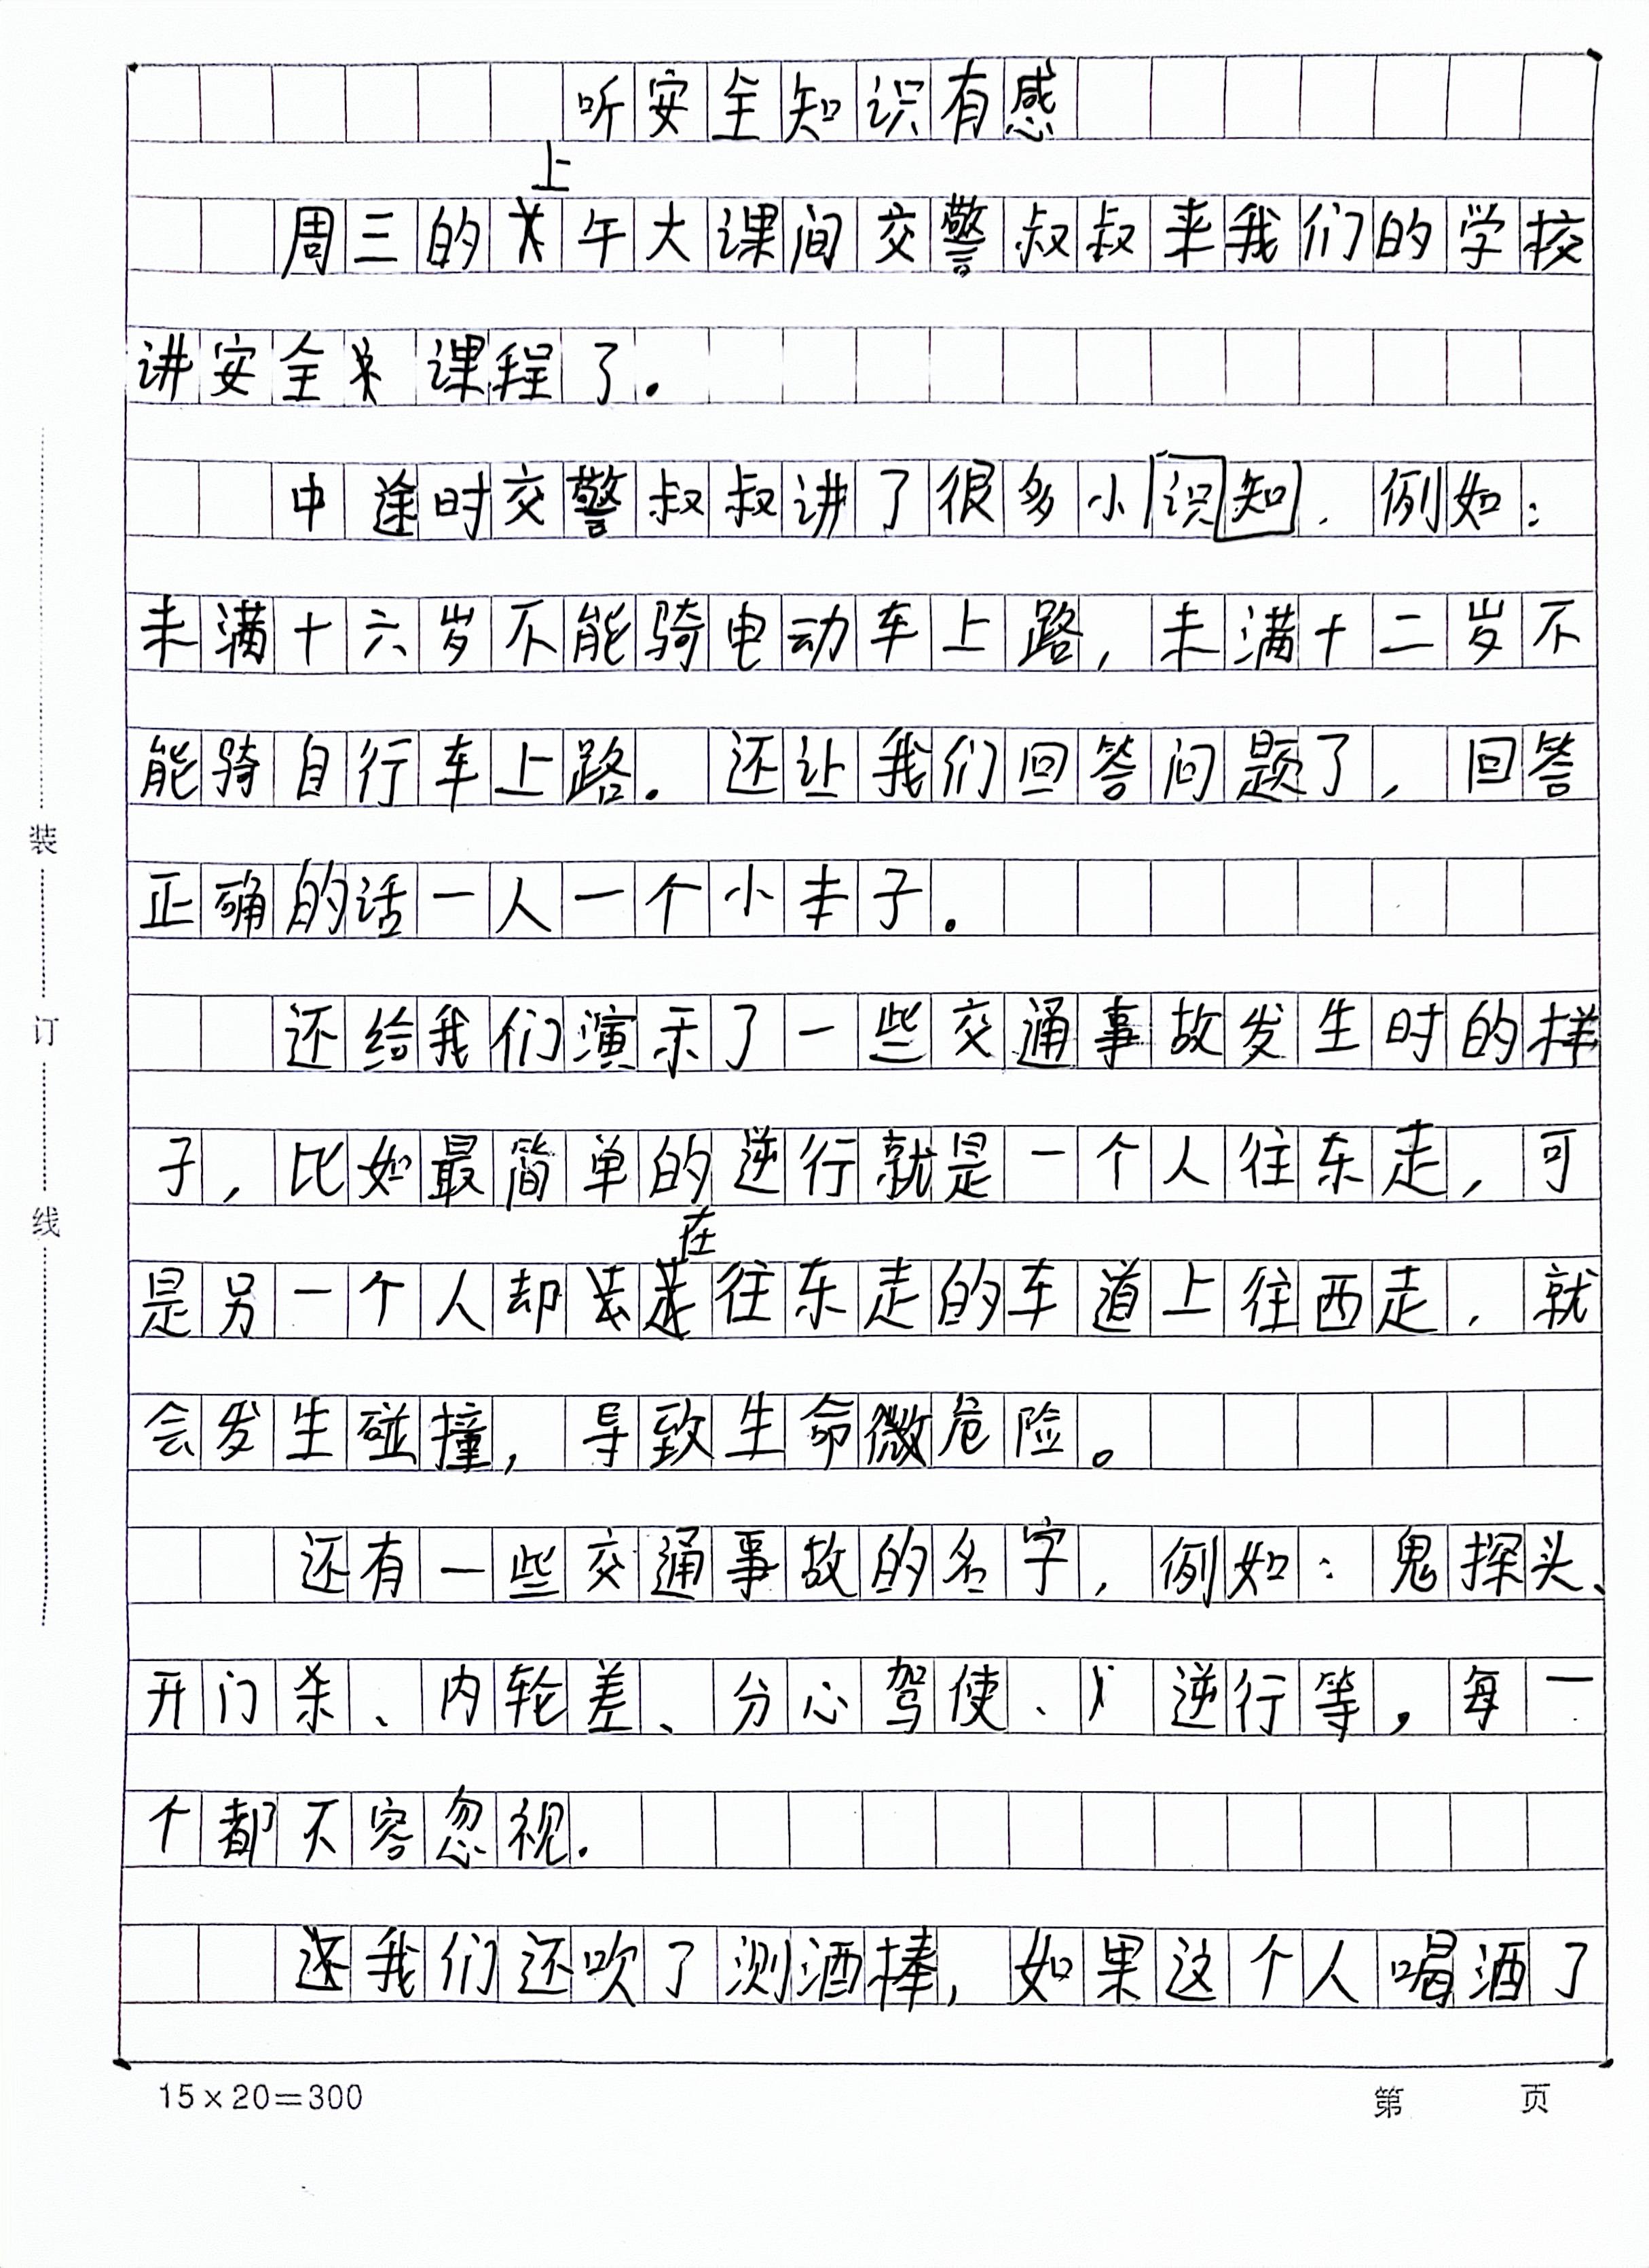 听安全知识有感
上
周三的午大课间交警叔叔来我们的学校
讲安全课程了。
中途时交警叔叔讲了很多小识知，例如：
未满十六岁不能骑电动车上路，未满十二岁不
能骑自行车上路。还让我们回答问题了，回答
正确的话一人一个小丰子。
还给我们演示了一些交通事故发生时的样
子，比如最简单的逆行就是一个人往东走，可
在
是另一个人却往东走的车道上往西走，就
会发生碰撞，导致生命微危险。
还有一些交通事故的名字，例如：鬼探头、
开门杀、内轮差、分心驾使、逆行等，每一
个都不容忽视.
我们还吹了测酒棒，如果这个人喝酒了
装
订
线
15×20=300
第 页